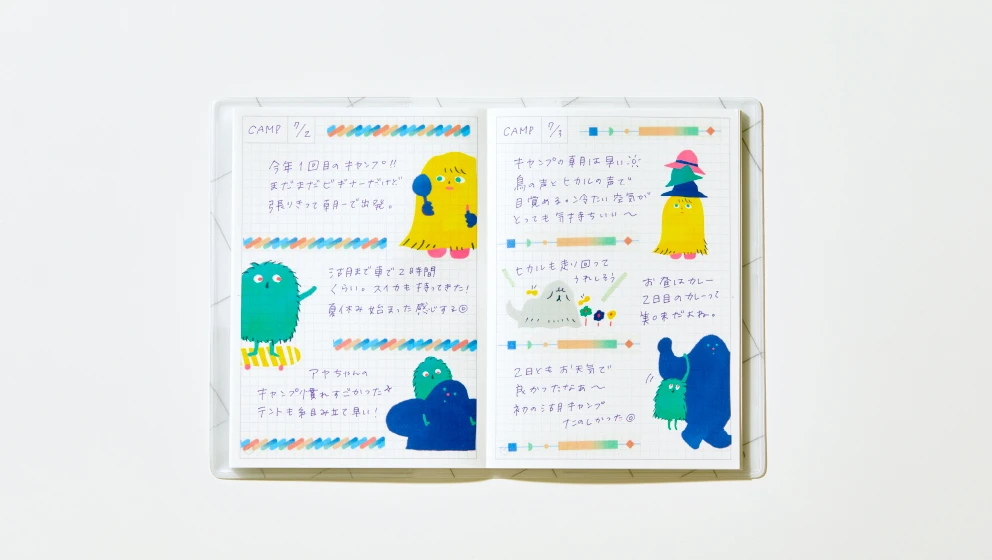 CAMP 7/2
今年1回目のキャンプ!!
まだまだビギナーだけど
張りきって朝一で出発。
湖まで車で2時間
くらい。スイカも持ってきた!
夏休み始まった感じする
アヤちゃんの
キャンプ慣れすごかった
テントも組み立て早い!
CAMP 7/3
キャンプの朝は早い
鳥の声とヒカルの声で
目覚める。冷たい空気が
とっても気持ちいい〜
ヒカルも走り回って
うれしそう
お昼はカレー
2日目のカレーって
美味だよね。
2日ともお天気で
良かったなあ〜
初の湖キャンプ
たのしかった